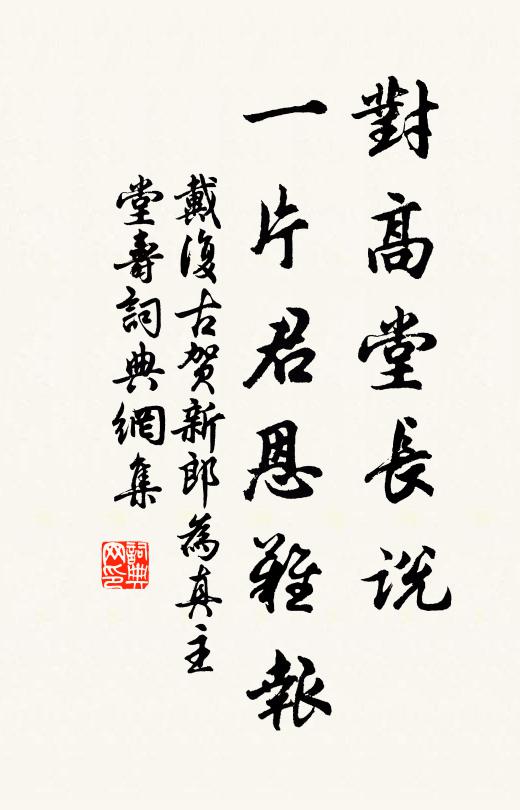 對高堂長說
一片君恩難報
戴復古賀新郎為真主
堂壽詞典網集
詞典
网印